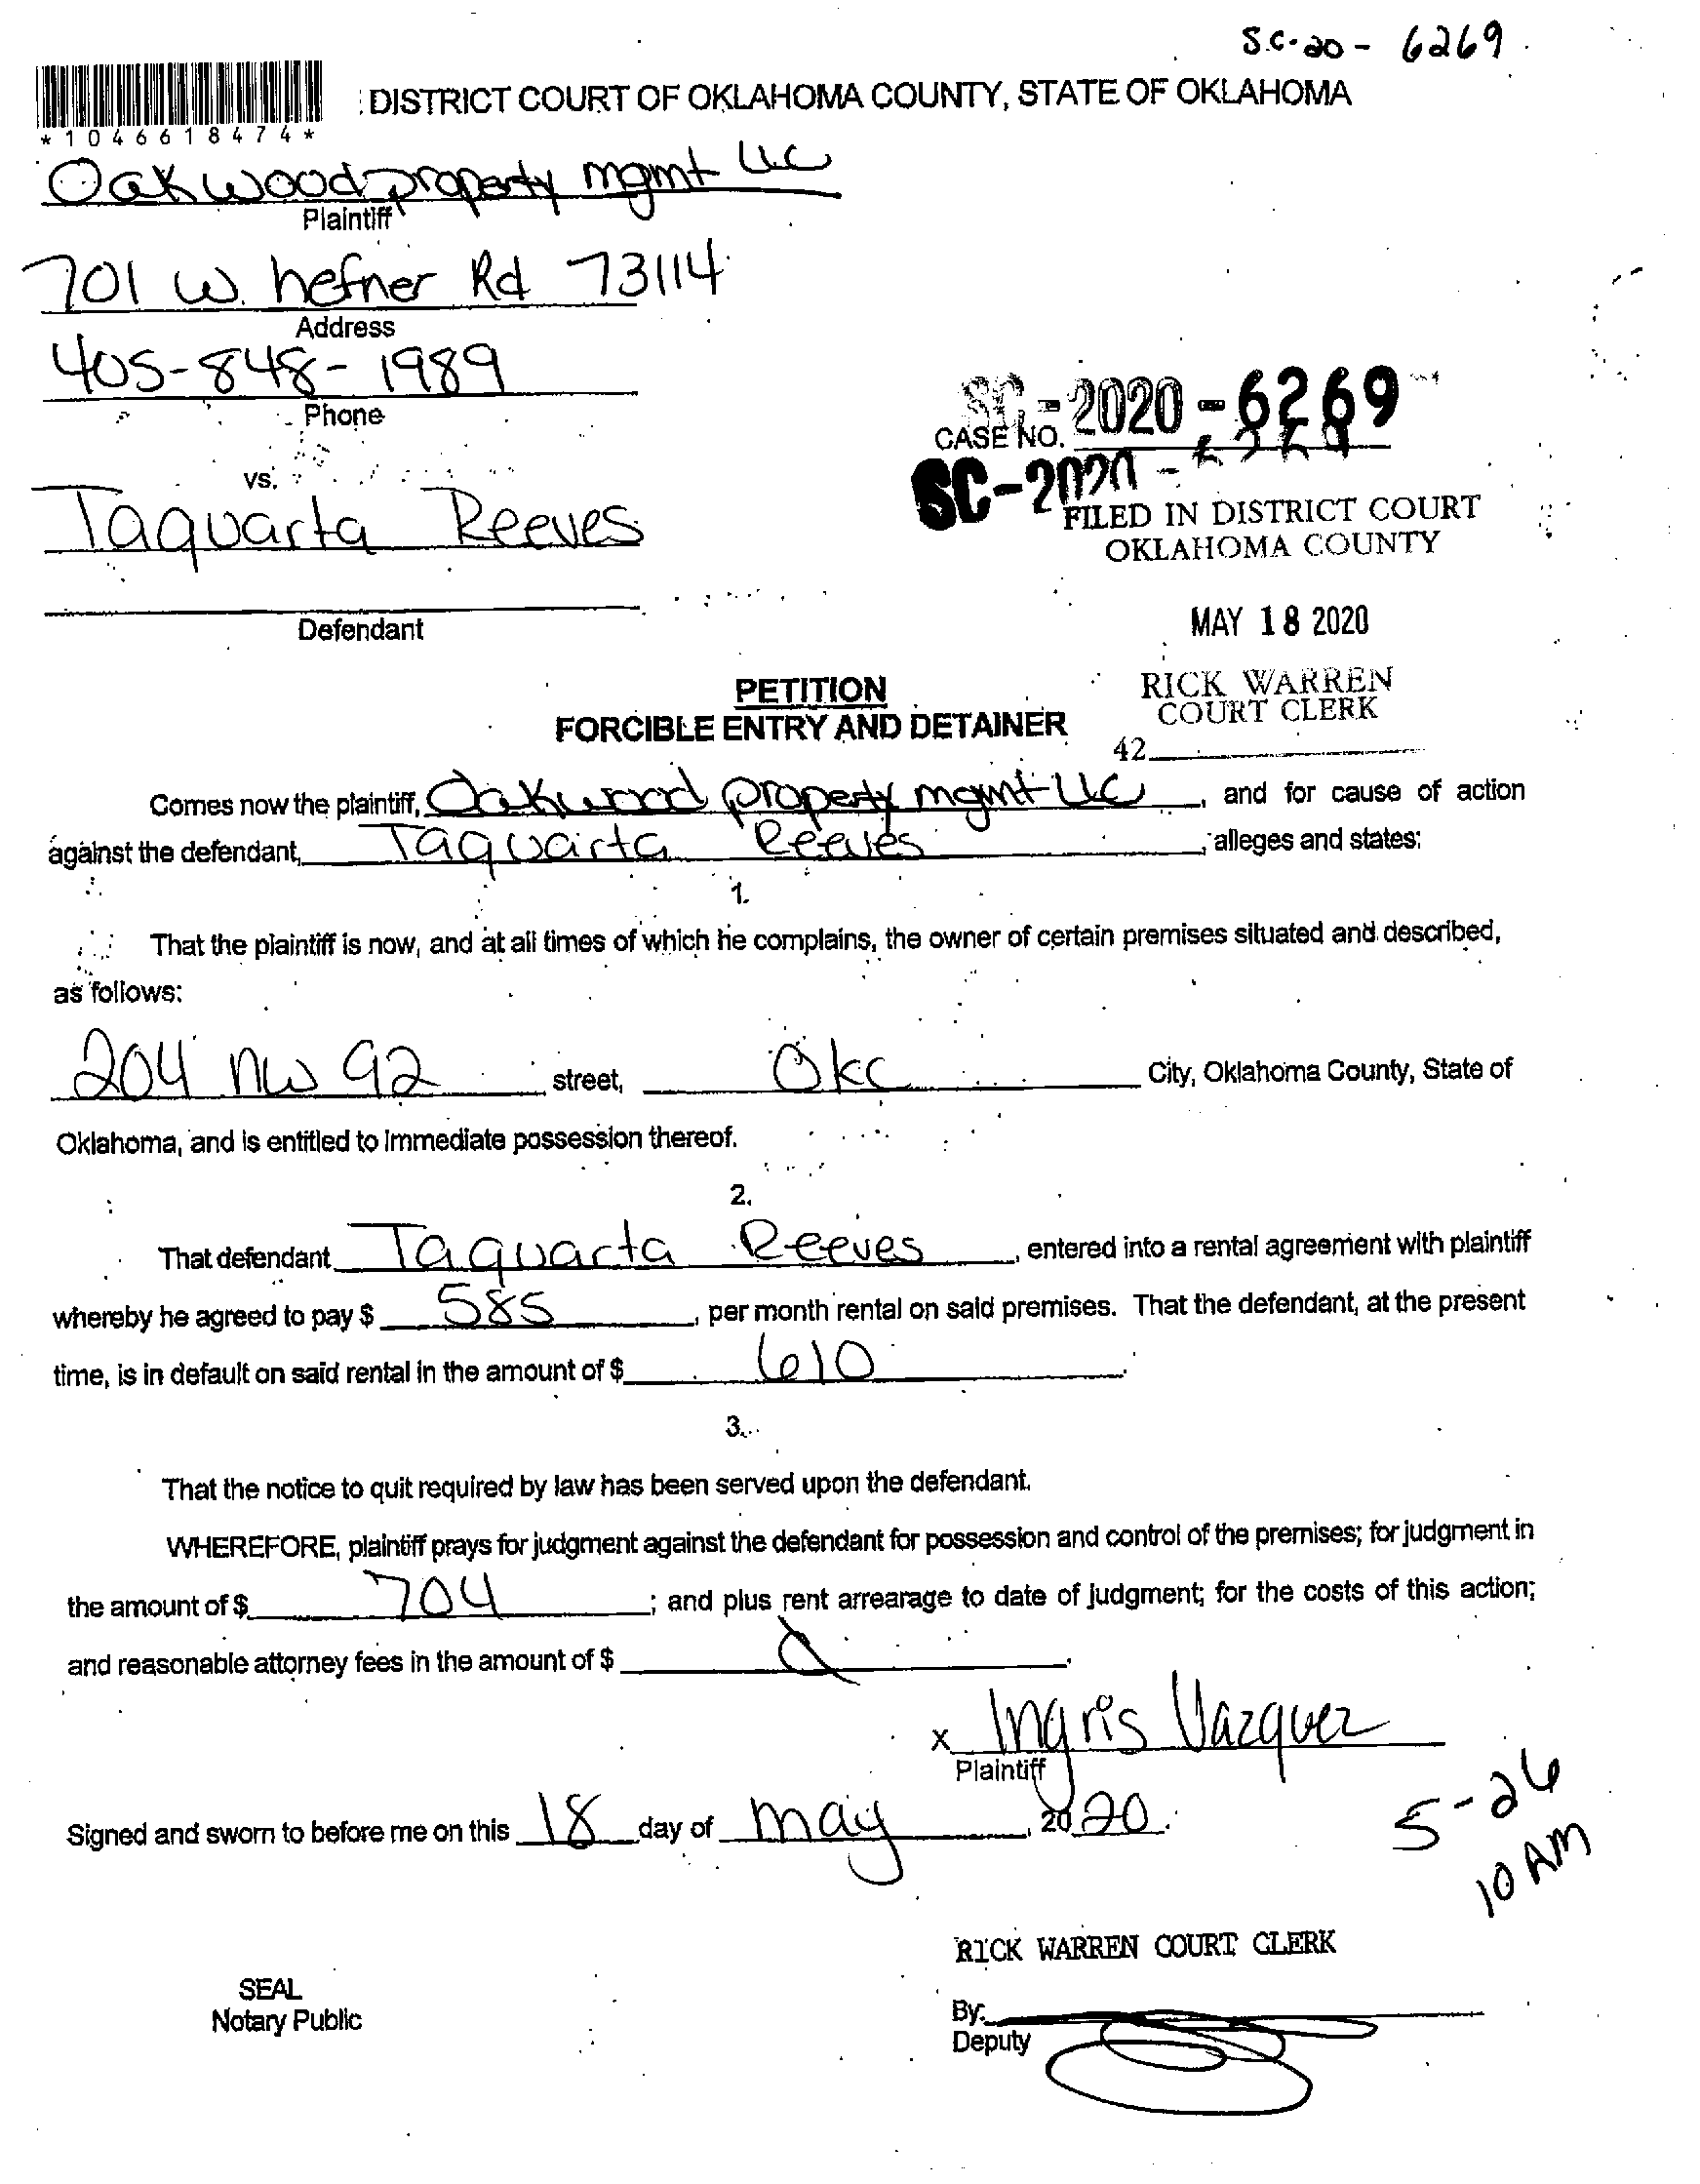 S.C-20 - 6269
DISTRICT COURT OF OKLAHOMA COUNTY, STATE OF OKLAHOMA
*1046618474*
Oakwood property mgmt LLC
Plaintiff
701 W. hefner Rd 73114
Address
405-848-1989
Phone
SC-2020-6269
CASE NO.
vs.
SC-2020 -
Taquarta Reeves
FILED IN DISTRICT COURT
OKLAHOMA COUNTY
Defendant
MAY 18 2020
PETITION
RICK WARREN
COURT CLERK
FORCIBLE ENTRY AND DETAINER
42
Comes now the plaintiff, Oakwood property mgmt LLC, and for cause of action
against the defendant, Taquarta Reeves, alleges and states:
1.
That the plaintiff is now, and at all times of which he complains, the owner of certain premises situated and described,
as follows:
204 NW 92 street, OKC City, Oklahoma County, State of
Oklahoma, and is entitled to immediate possession thereof.
2.
That defendant Taquarta Reeves, entered into a rental agreement with plaintiff
whereby he agreed to pay $ 585, per month rental on said premises. That the defendant, at the present
time, is in default on said rental in the amount of $ 610.
3.
That the notice to quit required by law has been served upon the defendant.
WHEREFORE, plaintiff prays for judgment against the defendant for possession and control of the premises; for judgment in
the amount of $ 704; and plus rent arrearage to date of judgment; for the costs of this action;
and reasonable attorney fees in the amount of $
x Ingris Vazquez
Plaintiff
5-26
10 AM
Signed and sworn to before me on this 18 day of may, 2020.
RICK WARREN COURT CLERK
SEAL
Notary Public
By:
Deputy